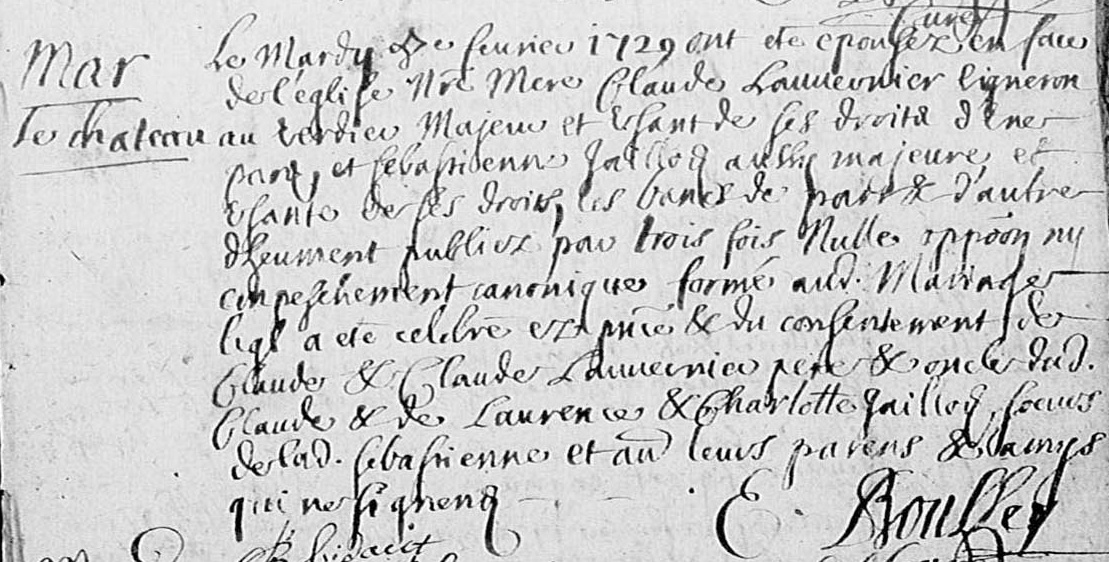 Curé
Mar
Le Mardy 8e feurier 1729 ont ete epousez en face
de l'eglise Nre Mere Claude Lauuernier vigneron
Le chateau
au verdier Majeur et Usant de ses droits d'une
part, et sebastienne Jaillod aussy majeure et
Usante de ses droits, les bancs de part & d'autre
dheument publiez par trois fois Nulle oppoōn ny
empeschement canonique formé aud. Mariage
leql a ete celebré ez pnce & du consentement de
Claude & Claude Lauuernier pere & oncle dud.
Claude & de Laurence & Charlotte Jaillod, soeurs
de lad. sebastienne et au leurs parens & amys
qui ne signent
E. Boullet